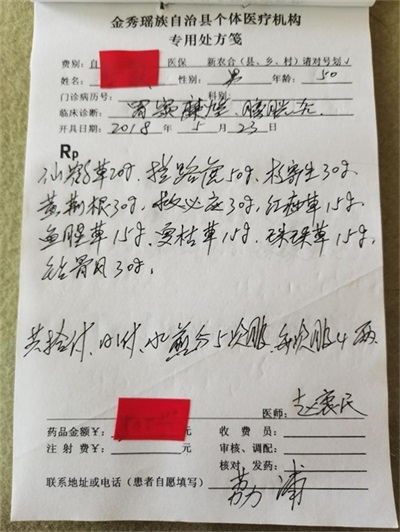 金秀瑶族自治县个体医疗机构
专用处方笺
费别：自 医保 新农合（县、乡、村）请对号划√
姓名： 性别：男 年龄：50
门诊病历号： 科别：
临床诊断：胃 糜烂、膀胱炎
开具日期：2018 年 5 月 23 日
Rp
仙鹤草20g、 50g、桑寄生30g、
黄荆根30g、救必应30g、红 草15g、
鱼腥草15g、夏枯草15g、珍珠草15g、
钻骨风30g、
共拾付、日1付、水煎分5次服、每次服4两
医师：赵 民
药品金额￥： 元 收 费 员：
注 射 费￥： 元 审核、调配：
核对 发药：
联系地址或电话（患者自愿填写）